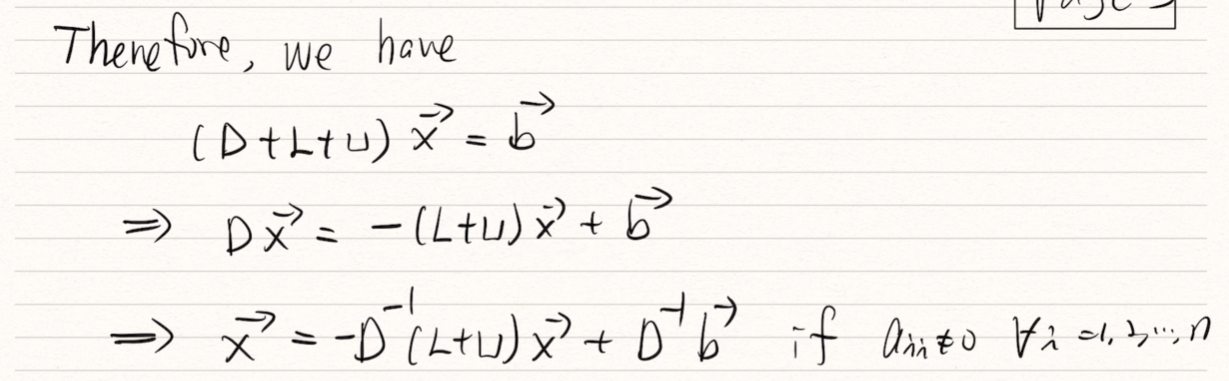 Therefore, we have
(D+L+U) x⃗ = b⃗
⇒ Dx⃗ = -(L+U) x⃗ + b⃗
⇒ x⃗ = -D⁻¹(L+U) x⃗ + D⁻¹ b⃗ if aᵢᵢ≠0 ∀i=1,2,…,n